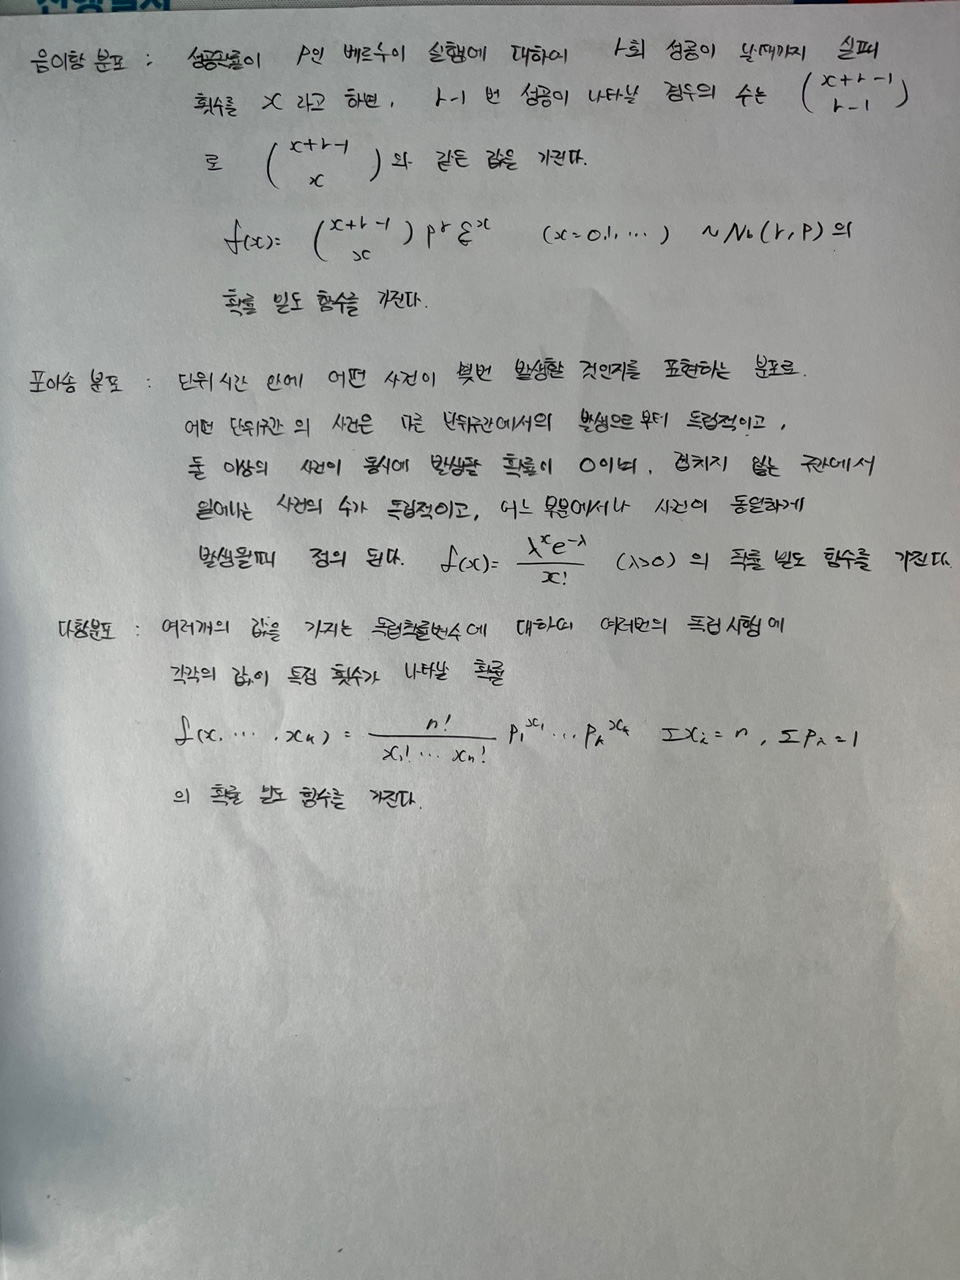 음이항 분포 : 성공확률이 P인 베르누이 실험에 대하여 r회 성공이 날때까지 실패
횟수를 x 라고 하면, r-1 번 성공이 나타날 경우의 수는 (x+r-1 r-1)
로 (x+r-1 x) 와 같은 값을 가진다.
f(x)= (x+r-1 x) p^r q^x (x=0,1,…) ~ Nb(r, p) 의
확률 밀도 함수를 가진다.
포아송 분포 : 단위시간 안에 어떤 사건이 몇번 발생할 것인지를 표현하는 분포로.
어떤 단위구간 의 사건은 다른 단위구간에서의 발생으로 부터 독립적이고,
둘 이상의 사건이 동시에 발생할 확률이 0이며, 겹치지 않는 구간에서
일어나는 사건의 수가 독립적이고, 어느 부분에서나 사건이 동일하게
발생될때 정의 된다. f(x)= λ^x e^-λ / x! (λ>0) 의 확률 밀도 함수를 가진다.
다항분포 : 여러개의 값을 가지는 독립확률변수에 대하여 여러번의 독립시험에
각각의 값이 특정 횟수가 나타날 확률
f(x, … , xk) = n! / x1! … xn! p1^x1 … pk^xk Σxi = n, Σpi = 1
의 확률 밀도 함수를 가진다.